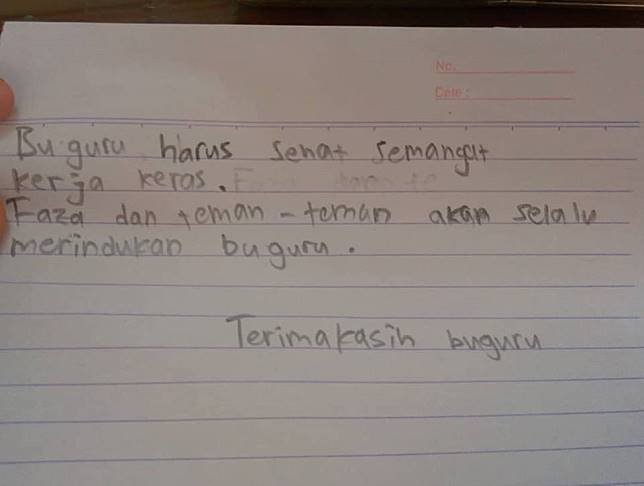 No.
Date :
Bu guru harus sehat semangat
kerja keras.
Faza dan teman - teman akan selalu
merindukan buguru.
Terimakasih buguru